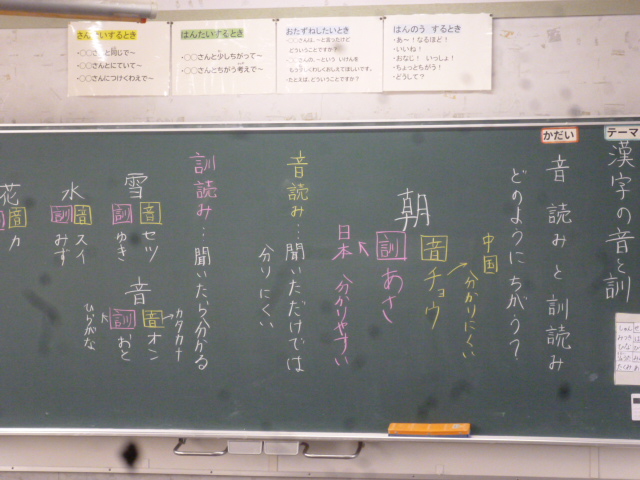 さんせいするとき
・○○さんと同じで～
・○○さんとにていて～
・○○さんにつけくわえて～
はんたいするとき
・○○さんと少しちがって～
・○○さんとちがう考えで～
おたずねしたいとき
・○○さんは、～と言ったけど
どういうことですか?
・○○さんの、～という いけんを
もう少しくわしくおしえてほしいです。
・たとえば、どういうことですか?
はんのう するとき
・あ～!なるほど!
・いいね!
・おなじ! いっしょ!
・ちょっとちがう!
・どうして?
テーマ
漢字の音と訓
かだい
音読みと訓読み
どのようにちがう?
朝
音 チョウ
中国
分かりにくい
訓 あさ
日本 分かりやすい
音読み…聞いただけでは
分りにくい
訓読み…聞いたら分かる
雪
音 セツ
訓 ゆき
音
音 オン
カタカナ
訓 おと
ひらがな
水
音 スイ
訓 みず
花
音 カ